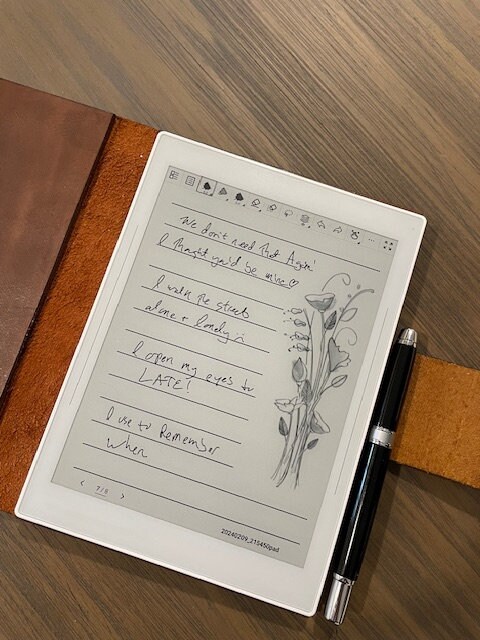 We don't need that Again!
I thought you'd be mine♡
I walk the streets
alone + lonely :
I open my eyes to
LATE!
I use to Remember
when
< 7/8 >
20240209_315450pad